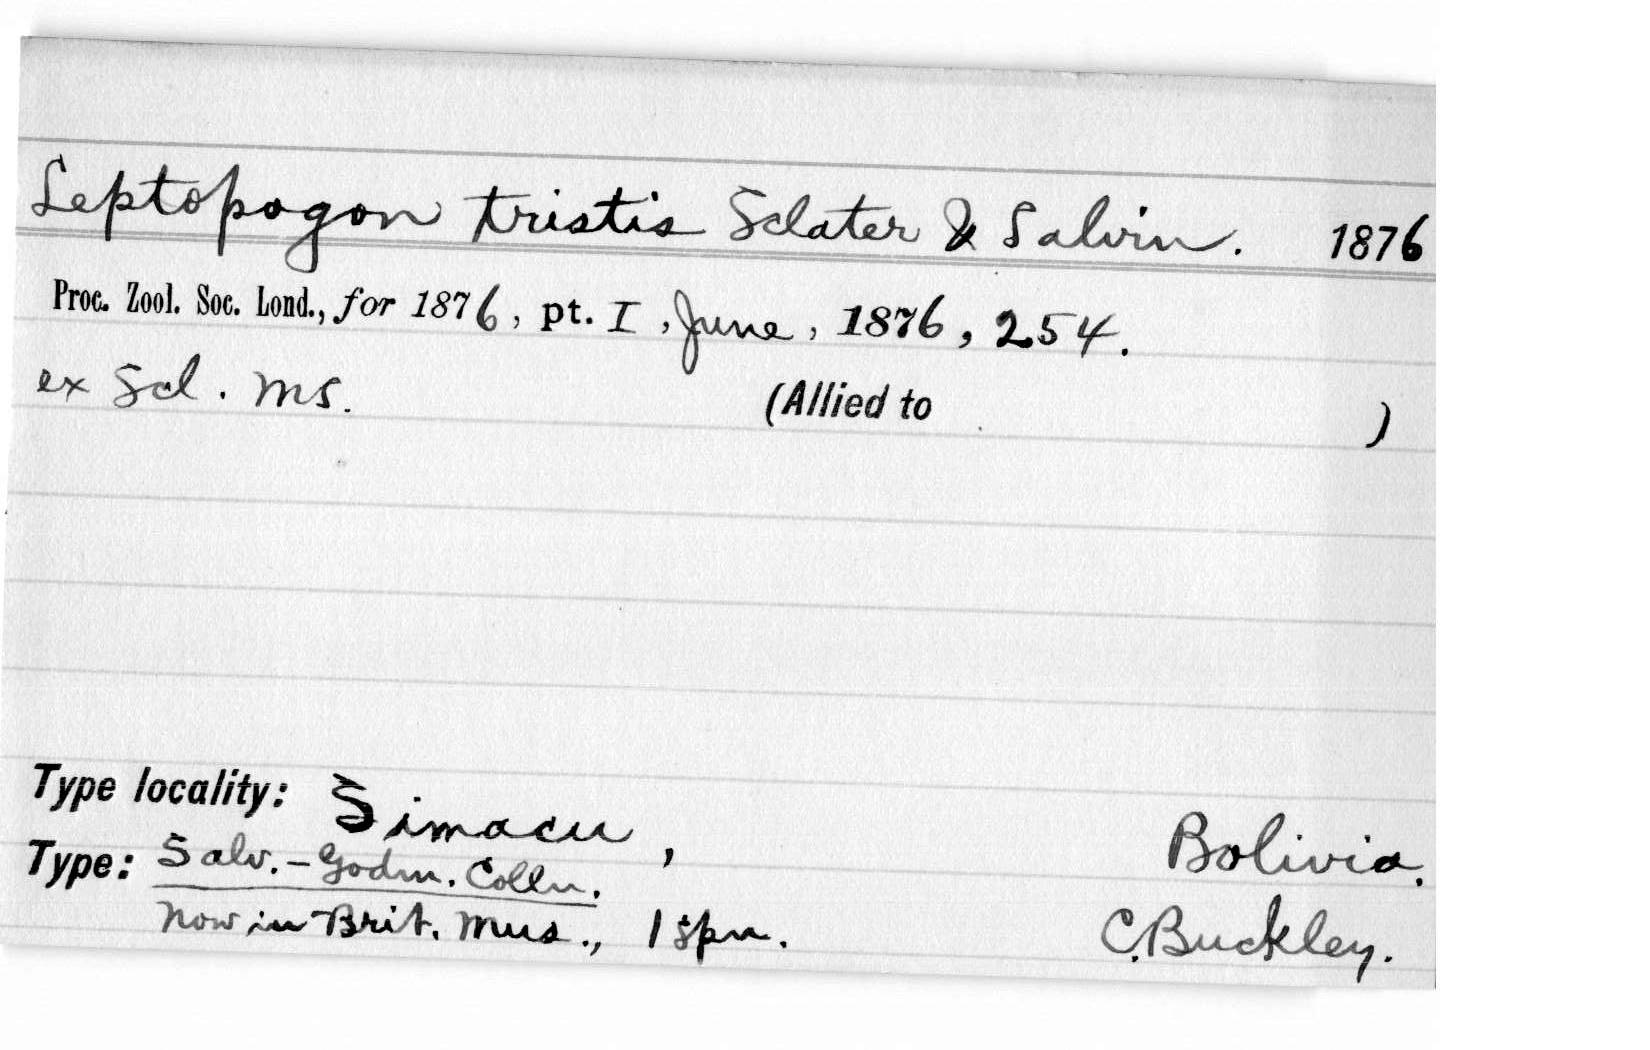 Leptopogon tristis Sclater & Salvin. 1876
Proc. Zool. Soc. Lond., for 1876, pt. I, June, 1876, 254.
ex Scl. MS. (Allied to )
Type locality: Simacu, Bolivia.
Type: Salv.-Godm. Colln.
now in Brit. Mus., 1 spn. C. Buckley.